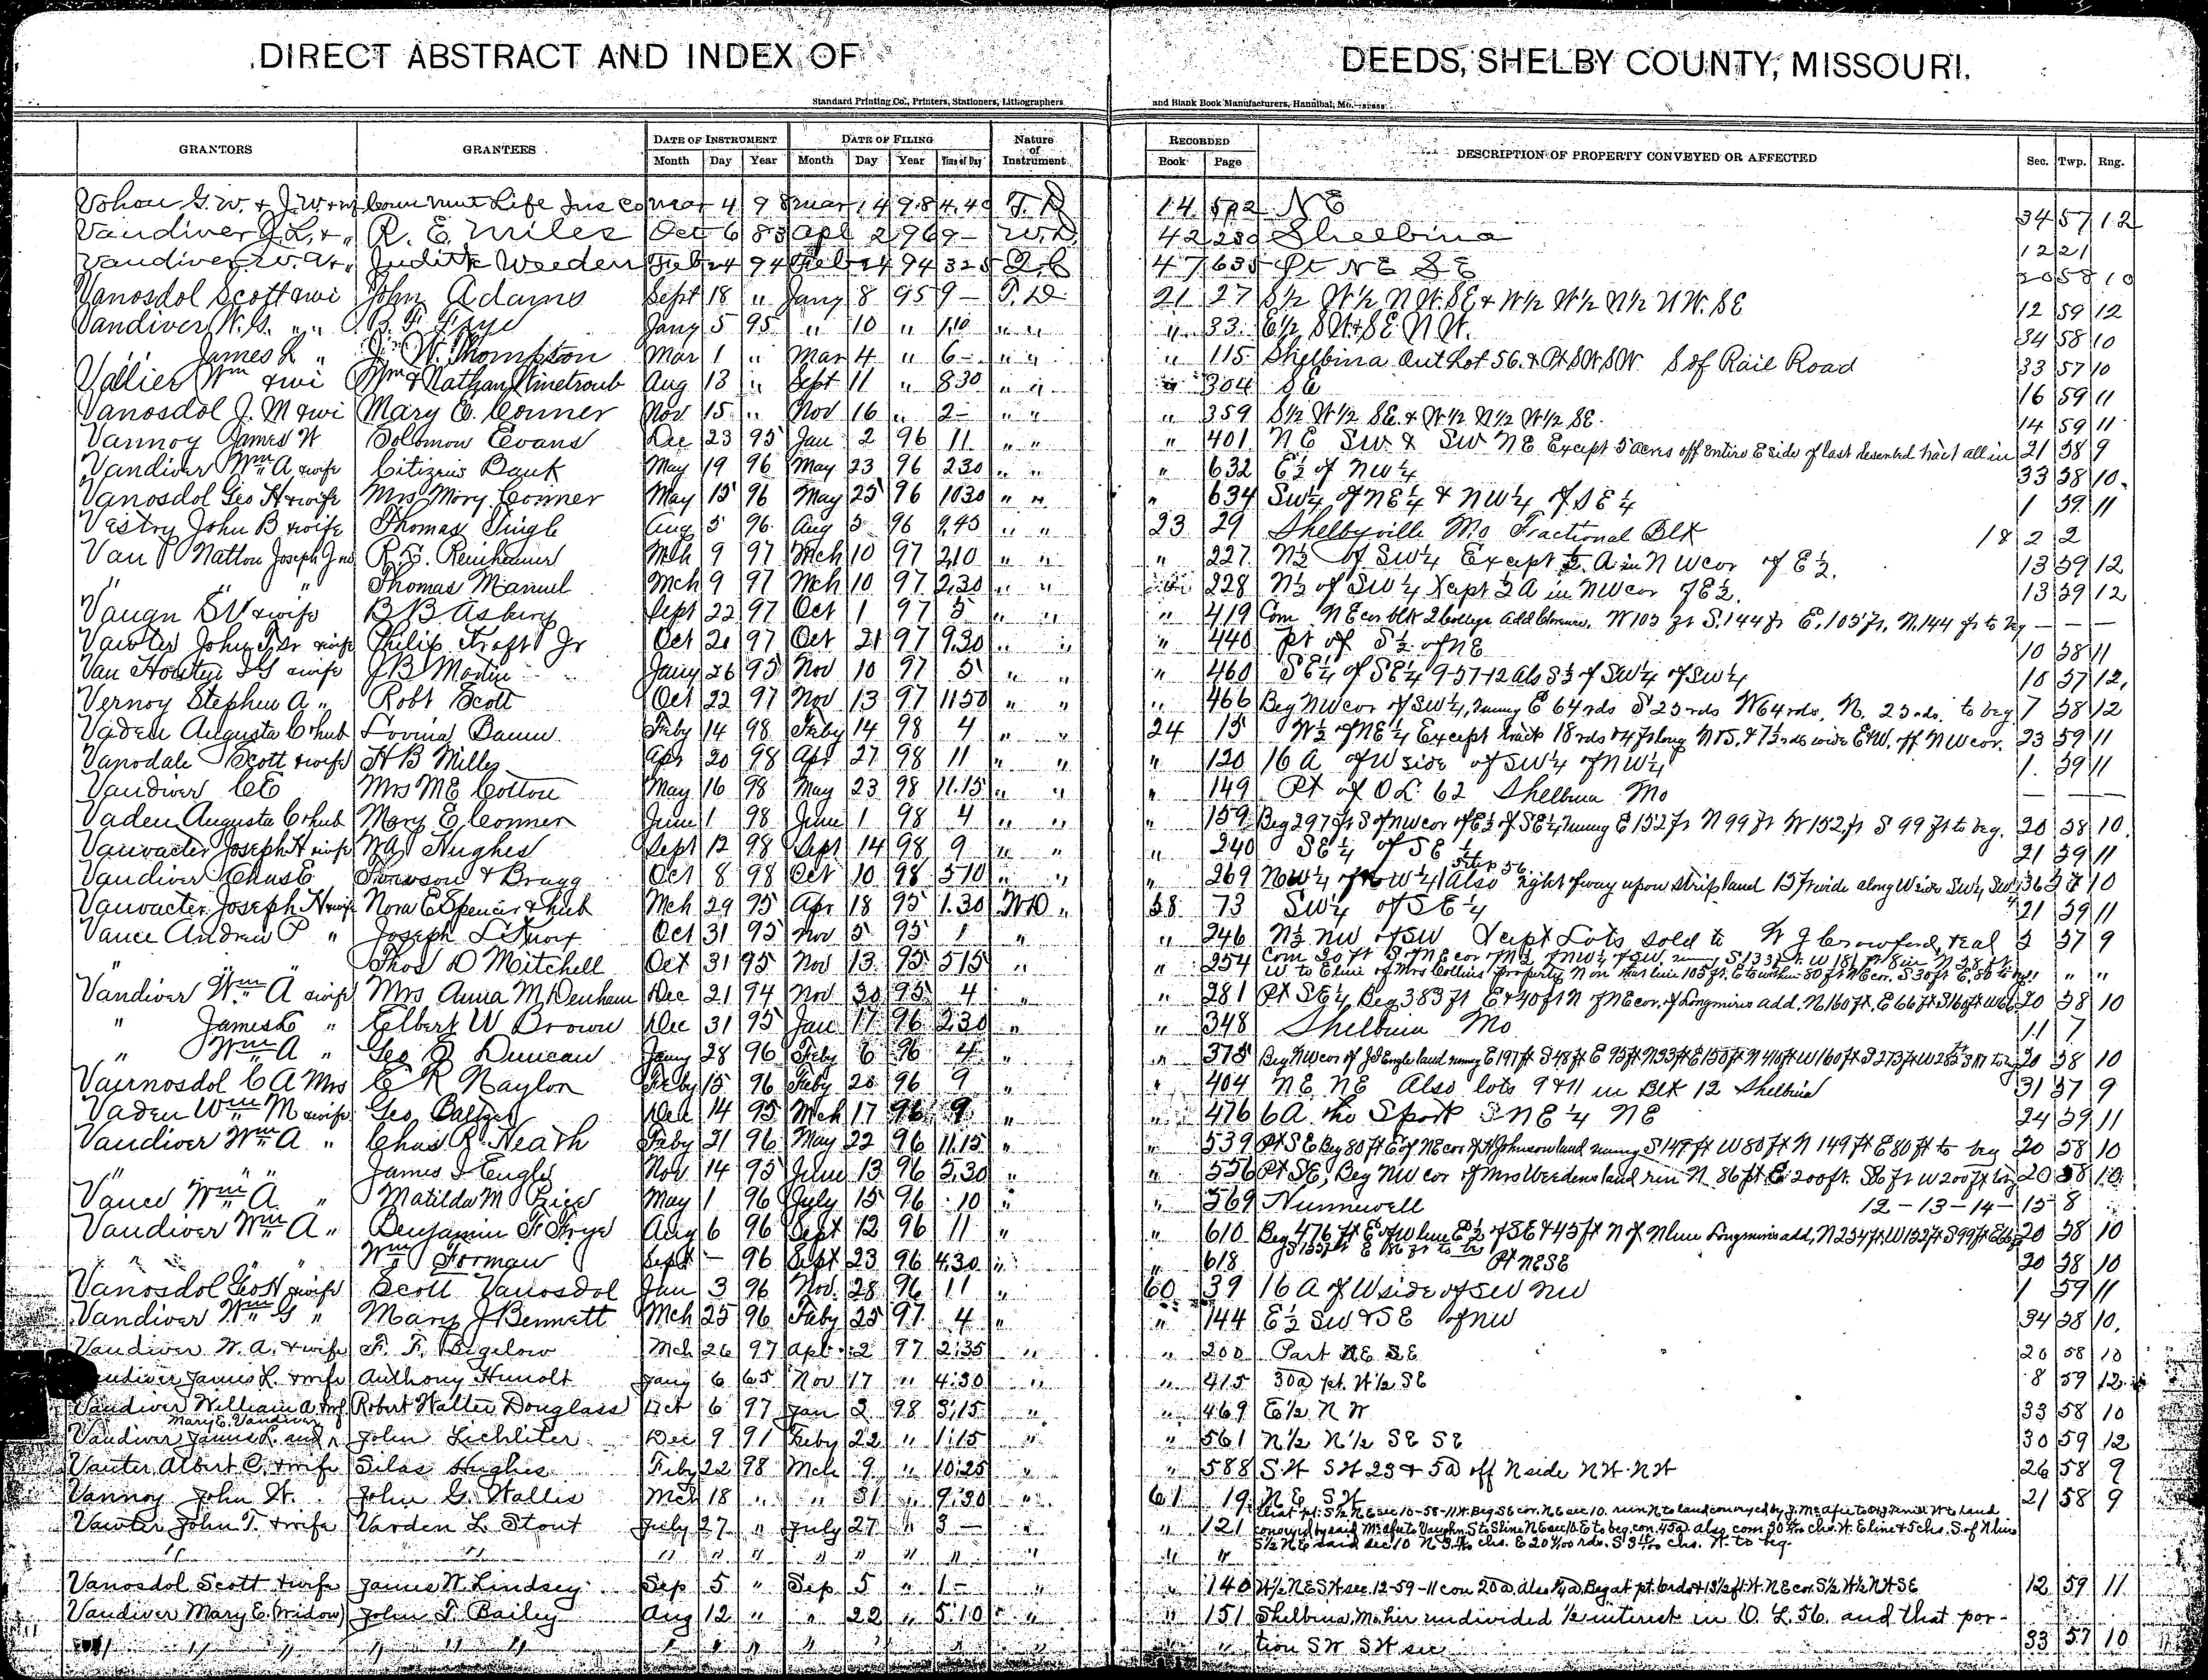 DIRECT ABSTRACT AND INDEX OF DEEDS, SHELBY COUNTY, MISSOURI.
Standard Printing Co., Printers, Stationers, Lithographers and Blank Book Manufacturers, Hannibal, Mo.
GRANTORS GRANTEES DATE OF INSTRUMENT DATE OF FILING Nature of Instrument RECORDED DESCRIPTION OF PROPERTY CONVEYED OR AFFECTED Sec. Twp. Rng.
Month Day Year Month Day Year Time of Day Book Page
G.W. & J.W. Conn Mut Life Ins Co Mar 4 98 Mar 14 98 4.40 T.D 14 N E 34 57 12
Vandiver J.L. & " R. E. Miles Oct 6 83 Apl 2 96 9- W.D 42 Shelbina 12 21
Vandiver W. A & " Judith Weeden Feb 24 94 Feb 24 94 3 25 Q.C 47 635 Pt N E S E 20 58 10
Vanosdol Scott & wi John Adams Sept 18 " Jany 8 95 9- T.D. 21 27 S½ W½ N W. SE & W½ W½ N½ N W. SE 12 59 12
Vandiver W. G. " " B. F. Frye Jany 5 95 " 10 " 1.10 " " " 33 E½ S W & S E. N W. 34 58 10
James L " J. W. Thompson Mar 1 " Mar 4 " 6- " " " 115 Shelbina Out Lot 56. & Pt S W S W. S of Rail Road 33 57 10
Vallier Wm & wi Wm & Nathan Winetroub Aug 13 " Sept 11 " 830 " " " 304 S E 16 59 11
Vanosdol J. M & wi Mary E. Conner Nov 15 " Nov 16 " 2- " " " 359 S½ W½ SE. & W½ N½ W½ SE. 14 59 11
Vannoy James W Solomon Evans Dec 23 95 Jan 2 96 11 " " " 401 N E SW & SW NE Except 5 acres off entire E side of last described tract all in 21 58 9
Vandiver Wm A & wife Citizens Bank May 19 96 May 23 96 230 " " " 632 E½ of NW¼ 33 58 10
Vanosdol Geo H & wife Mrs Mary Conner May 15 96 May 25 96 1030 " " " 634 SW¼ of NE¼ & NW¼ of SE¼ 1 59 11
Vestry John B & wife Thomas Tingle Aug 5 96 Aug 5 96 9.40 " " 23 29 Shelbyville Mo Fractional Blk 18 2 2
Van Natton Joseph J Mch 9 97 Mch 10 97 210 " " " 227 N½ of SW¼ Except ½ A in N W cor of E½. 13 59 12
" " " Thomas Manuel Mch 9 97 Mch 10 97 2.30 " " " 228 N½ of SW¼ Xcept ½ A in NW cor of E½. 13 59 12
Vaugn & wife B B Asbury Sept 22 97 Oct 1 97 5 " " " 419 Com NE cor blk 2 College Add Clarence, W 105 ft S. 144 ft E. 105 ft, N. 144 ft to beg — — —
Vawter John T. Sr & wife Philip Kraft Jr Oct 21 97 Oct 21 97 9.30 " " " 440 pt of S½ of NE 10 58 11
Van Houten & wife J B Martin Jany 26 95 Nov 10 97 5 " " " 460 SE¼ of SE¼ 9-57-12 als S½ of SW¼ of SW¼ 10 57 12
Vernoy Stephen A " Robt Scott Oct 22 97 Nov 13 97 1150 " " " 466 Beg NW cor of SW¼, runng E 64 rds S 25 rds W 64 rds. N. 25 rds. to beg 7 58 12
Vaden Augusta C & hub Lovina Feby 14 98 Feby 14 98 4 " " 24 15 W½ of NE¼ Except track 18 rds & 4 ft long N & S. & 7½ rds wide E & W. off NW cor. 23 59 11
Vanodale Scott & wife H B Miller Apr 20 98 Apr 27 98 11 " " " 120 16 A of W side of SW¼ of NW¼ 1 59 11
Vandiver C E Mrs M E Cotton May 16 98 May 23 98 11.15 " " " 149 Pt of O L. 62 Shelbina Mo — — —
Vaden Augusta C & hub Mary E Conner June 1 98 June 1 98 4 " " " 159 Beg 297 ft S of NW cor of E½ of SE¼, runng E 152 ft N 99 ft W 152 ft S 99 ft to beg. 20 58 10
Vanvacter Joseph H & wife Hughes Sept 12 98 Sept 14 98 9 " " " 240 SE¼ of SE¼ 21 59 11
Vandiver Chas E Towson & Bragg Oct 8 98 Oct 10 98 510 " " " 269 NW¼ of NW¼ Also right of way upon strip land 15 ft wide along W side SW¼ SW¼ 36 57 10
Vanvacter Joseph H & wife Nora E Spencer & hub Mch 29 95 Apr 18 95 1.30 WD " 58 73 SW¼ of SE¼ 21 59 11
Vance Andrew P " Joseph Oct 31 95 Nov 5 95 1 " " 246 N½ NW of SW Xcept Lots sold to W J Crawford, et al 5 57 9
" " " Thos D Mitchell Oct 31 95 Nov 13 95 515 " " 254 Com 20 ft S of NE cor of N½ of NW¼ of SW,
W to E line of Mrs Collins property N on that line 105 ft. " " "
Vandiver Wm A & wife Mrs Anna M. Denham Dec 21 94 Nov 30 95 4 " " 281 Pt SE¼ Beg 383 ft E & 40 ft N of NE cor. of Longmires add. N 160 ft. E 66 ft S 160 ft W 66 20 58 10
" James L " Elbert W Brown Dec 31 95 Jan 17 96 2.30 " " 348 Shelbina Mo 11 7
" Wm A " Geo Duncan Jany 28 96 Feby 6 96 4 " " 375 Beg NW cor of J I Engle land runng E 197 ft S 48 ft E 95 ft 20 58 10
Vairnosdol C A Mrs E R Naylon Feby 15 96 Feby 20 96 9 " " 404 NE NE Also lots 9 & 11 in Blk 12 Shelbina 31 57 9
Vaden Wm M & wife Geo Baltzer Dec 14 95 Mch 17 96 9 " " 476 6 A NE¼ NE 24 59 11
Vandiver Wm A " Chas R. Heath Feby 21 96 May 22 96 11.15 " " 539 Pt SE Beg 80 ft E of NE cor of Johnson land runng S 149 ft W 80 ft N 149 ft E 80 ft to beg 20 58 10
" " " James I Engle Nov 14 95 June 13 96 5.30 " " 556 Pt SE, Beg NW cor of Mrs Weedens land run N 86 ft E 200 ft. S 86 ft W 200 ft to beg 20 58 10
Vance Wm A. " Matilda M Rice May 1 96 July 15 96 10 " " 569 Hunnewell 12-13-14-15 8
Vandiver Wm A " Benjamin F. Frye Aug 6 96 Sept 12 96 11 " " 610 Beg 476 ft E of W line E½ of SE & 45 ft N of N line Longmires add, N 254 ft. W 152 ft S 99 ft 20 58 10
" " " Wm Forman Sept — 96 Sept 23 96 4.30 " " 618 Pt NE SE 20 58 10
Vanosdol Geo H & wife Scott Vanosdol Jan 3 96 Nov. 28 96 11 " 60 39 16 A of W side of SW NW 1 59 11
Vandiver Wm G " Mary J Bennett Mch 25 96 Feby 25 97 4 " " 144 E½ SW & SE of NW 34 58 10.
Vandiver W. A. & wife F. F. Bigelow Mch 26 97 Apl 2 97 2:35 " " 200 Part NE SE 20 58 10
Vandiver James L. & wife Anthony Hunolt Jany 6 65 Nov 17 " 4:30 " " 415 30a pt. W½ SE 8 59 12
Vandiver William A & wf Robert Walter Douglass Oct 6 97 Jan 3 98 3:15 " " 469 E½ N W 33 58 10
Mary E. Vandiver
Vandiver James L. and John Lichliter Dec 9 91 Feby 22 " 1:15 " " 561 N½ N½ SE SE 30 59 12
Vauter Albert C. & wife Silas Hughes Feby 22 98 Mch 9 " 10:25 " " 588 S W S W 23 & 5a off N side N W. N W 26 58 9
Vannoy John W. John G. Wallis Mch 18 " " 31 " 9:30 " 61 19 N E S W 21 58 9
Vawter John T. & wife Varden L. Stout July 27 " July 27 " 3 — " " 121 that pt. S½ N E sec 10-58-11 W. Beg S E cor. N E sec 10. run N to land conveyed by J. McAfee to
conveyed by said McAfee to Vaughn, S to S line N E sec 10. E to beg. con. 45a also com
" " " " " " " " " " S½ N E said sec 10 to beg.
Vanosdol Scott & wife James W. Lindsey Sep 5 " Sep 5 " 1- " 140 W½ N E S W sec. 12-59-11 con 20a. also Beg at pt. 6 rds & 13½ ft. W. N E cor. S½ W½ N W S E 12 59 11
Vandiver Mary E. (Widow) John T. Bailey Aug 12 " " 22 " 5:10 " " 151 Shelbina, Mo. her undivided ½ interest in O. L. 56. and that por-
" " " " " " " " " " " " tion S W S W sec 33 57 10